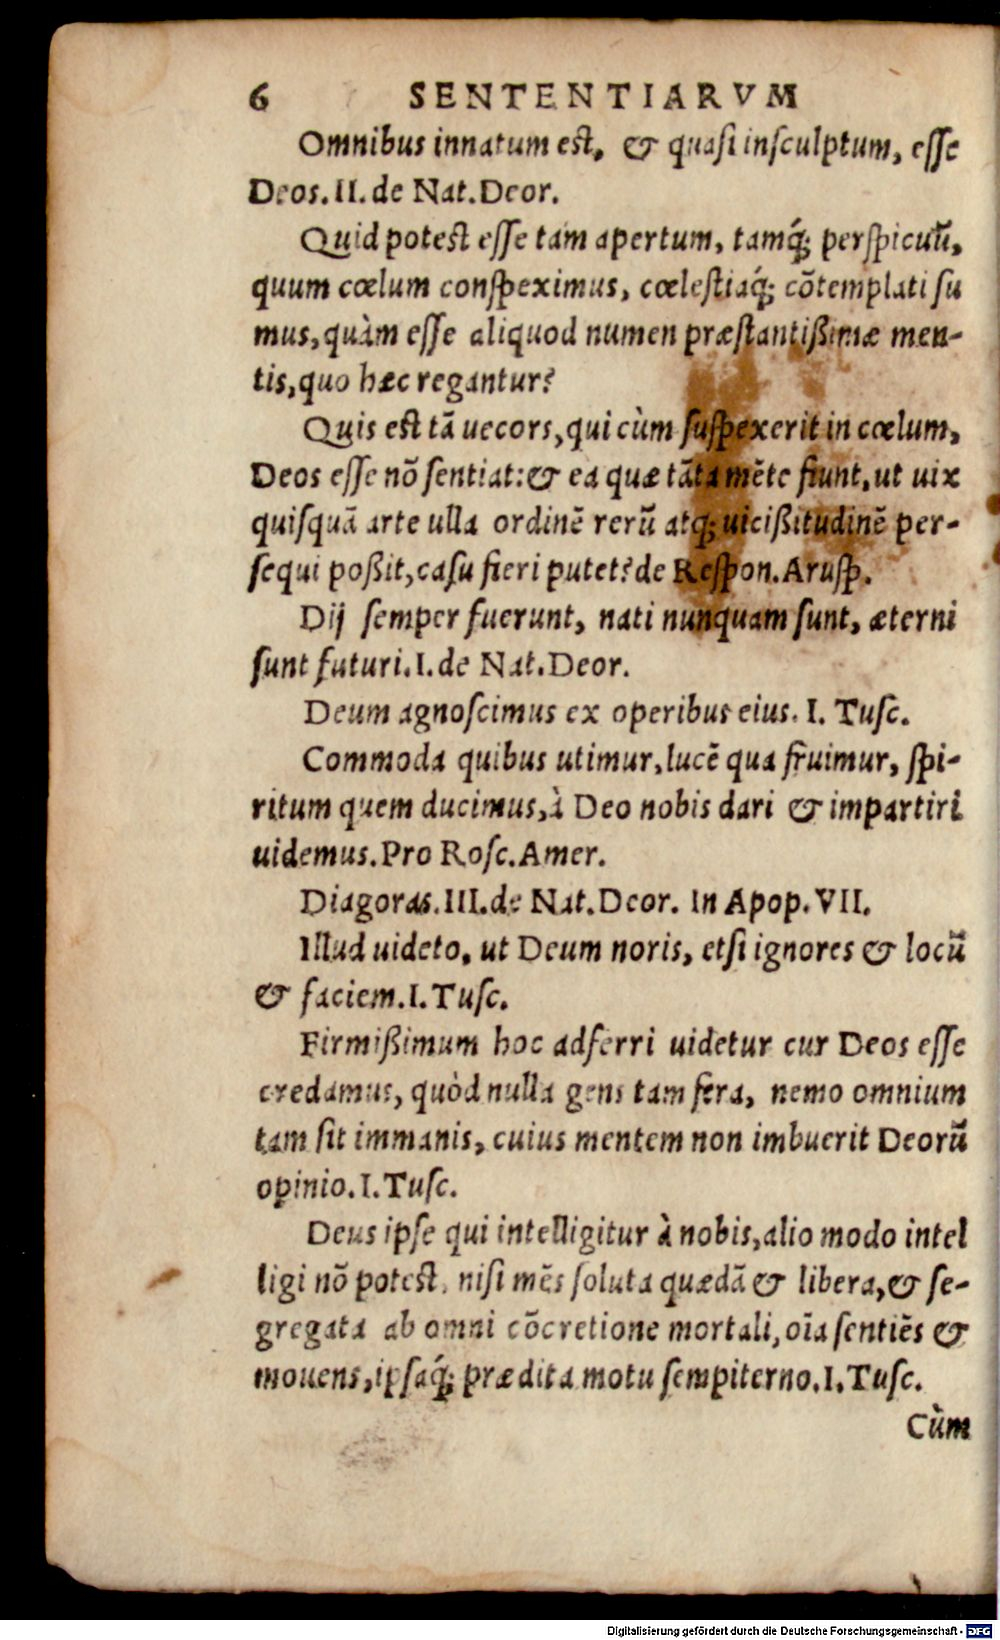 6 SENTENTIARVM
Omnibus innatum est, & quasi insculptum, esse
Deos. II. de Nat. Deor.
Quid potest esse tam apertum, tamq́; perspicuũ,
quum cœlum conspeximus, cœlestiaq́; cõtemplati su
mus, quàm esse aliquod numen præstantißimæ men-
tis, quo hæc regantur?
Quis est tã uecors, qui cùm suspexerit in cœlum,
Deos esse nõ sentiat: & ea quæ tãta mẽte fiunt, ut uix
quisquã arte ulla ordinẽ rerũ atq; uicißitudinẽ per-
sequi poßit, casu fieri putet? de Respon. Arusp.
Dij semper fuerunt, nati nunquam sunt, æterni
sunt futuri. I. de Nat. Deor.
Deum agnoscimus ex operibus eius. I. Tusc.
Commoda quibus utimur, lucẽ qua fruimur, spi-
ritum quem ducimus, à Deo nobis dari & impartiri
uidemus. Pro Rosc. Amer.
Diagoras. III. de Nat. Deor. In Apop. VII.
Illud uideto, ut Deum noris, etsi ignores & locũ
& faciem. I. Tusc.
Firmißimum hoc adferri uidetur cur Deos esse
credamus, quòd nulla gens tam fera, nemo omnium
tam sit immanis, cuius mentem non imbuerit Deorũ
opinio. I. Tusc.
Deus ipse qui intelligitur à nobis, alio modo intel
ligi nõ potest, nisi mẽs soluta quædã & libera, & se-
gregata ab omni cõcretione mortali, oĩa sentiẽs &
mouens, ipsaq́; prædita motu sempiterno. I. Tusc.
Cùm
Digitalisierung gefördert durch die Deutsche Forschungsgemeinschaft - DFG